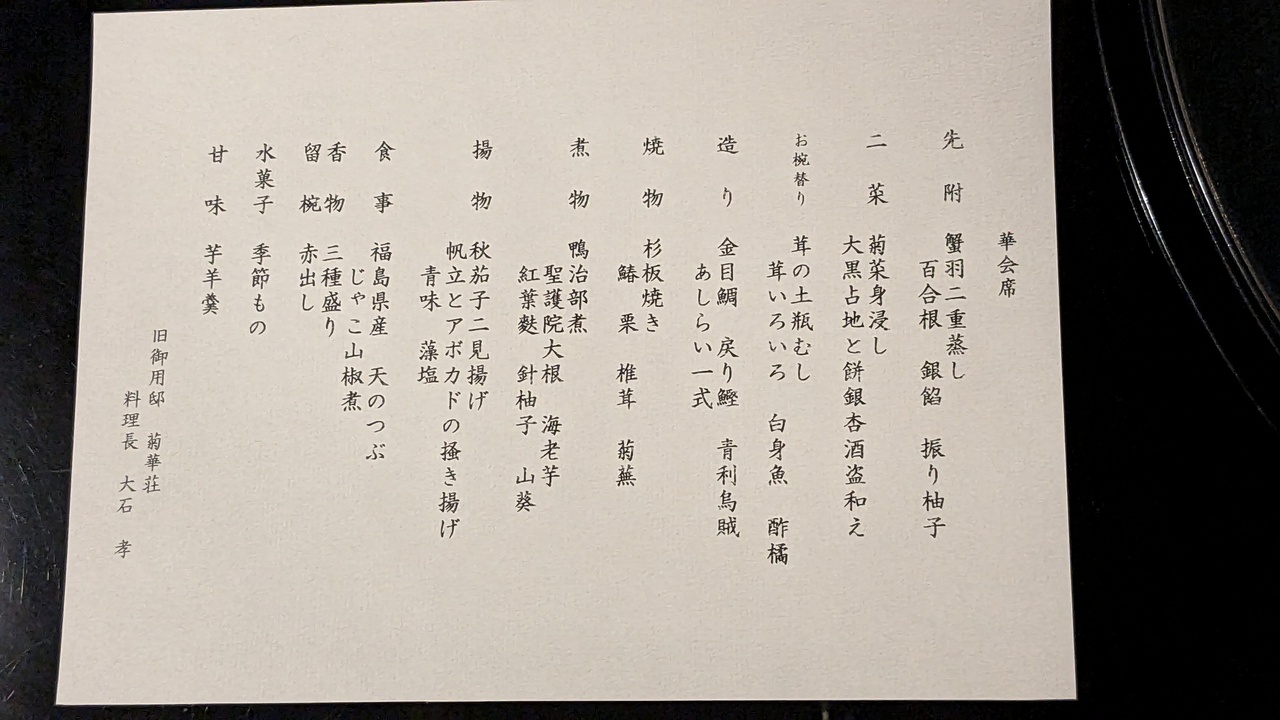 華会席
先附 蟹羽二重蒸し
百合根 銀餡 振り柚子
二菜 菊菜身浸し
大黒占地と餅銀杏酒盗和え
お椀替り 茸の土瓶むし
茸いろいろ 白身魚 酢橘
造り 金目鯛 戻り鰹 青利烏賊
あしらい一式
焼物 杉板焼き
鰆 栗 椎茸 菊蕪
煮物 鴨治部煮
聖護院大根 海老芋
紅葉麩 針柚子 山葵
揚物 秋茄子二見揚げ
帆立とアボカドの掻き揚げ
青味 藻塩
食事 福島県産 天のつぶ
じゃこ山椒煮
香物 三種盛り
留椀 赤出し
水菓子 季節もの
甘味 芋羊羹
旧御用邸 菊華荘
料理長 大石 孝